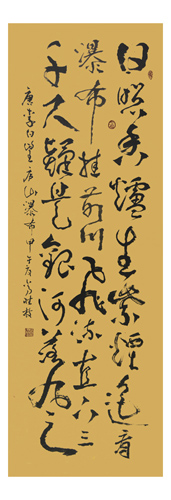 日照香爐生紫煙遙看
瀑布挂前川飛流直下三
千尺疑是銀河落九天
唐李白望庐山瀑布甲午夏